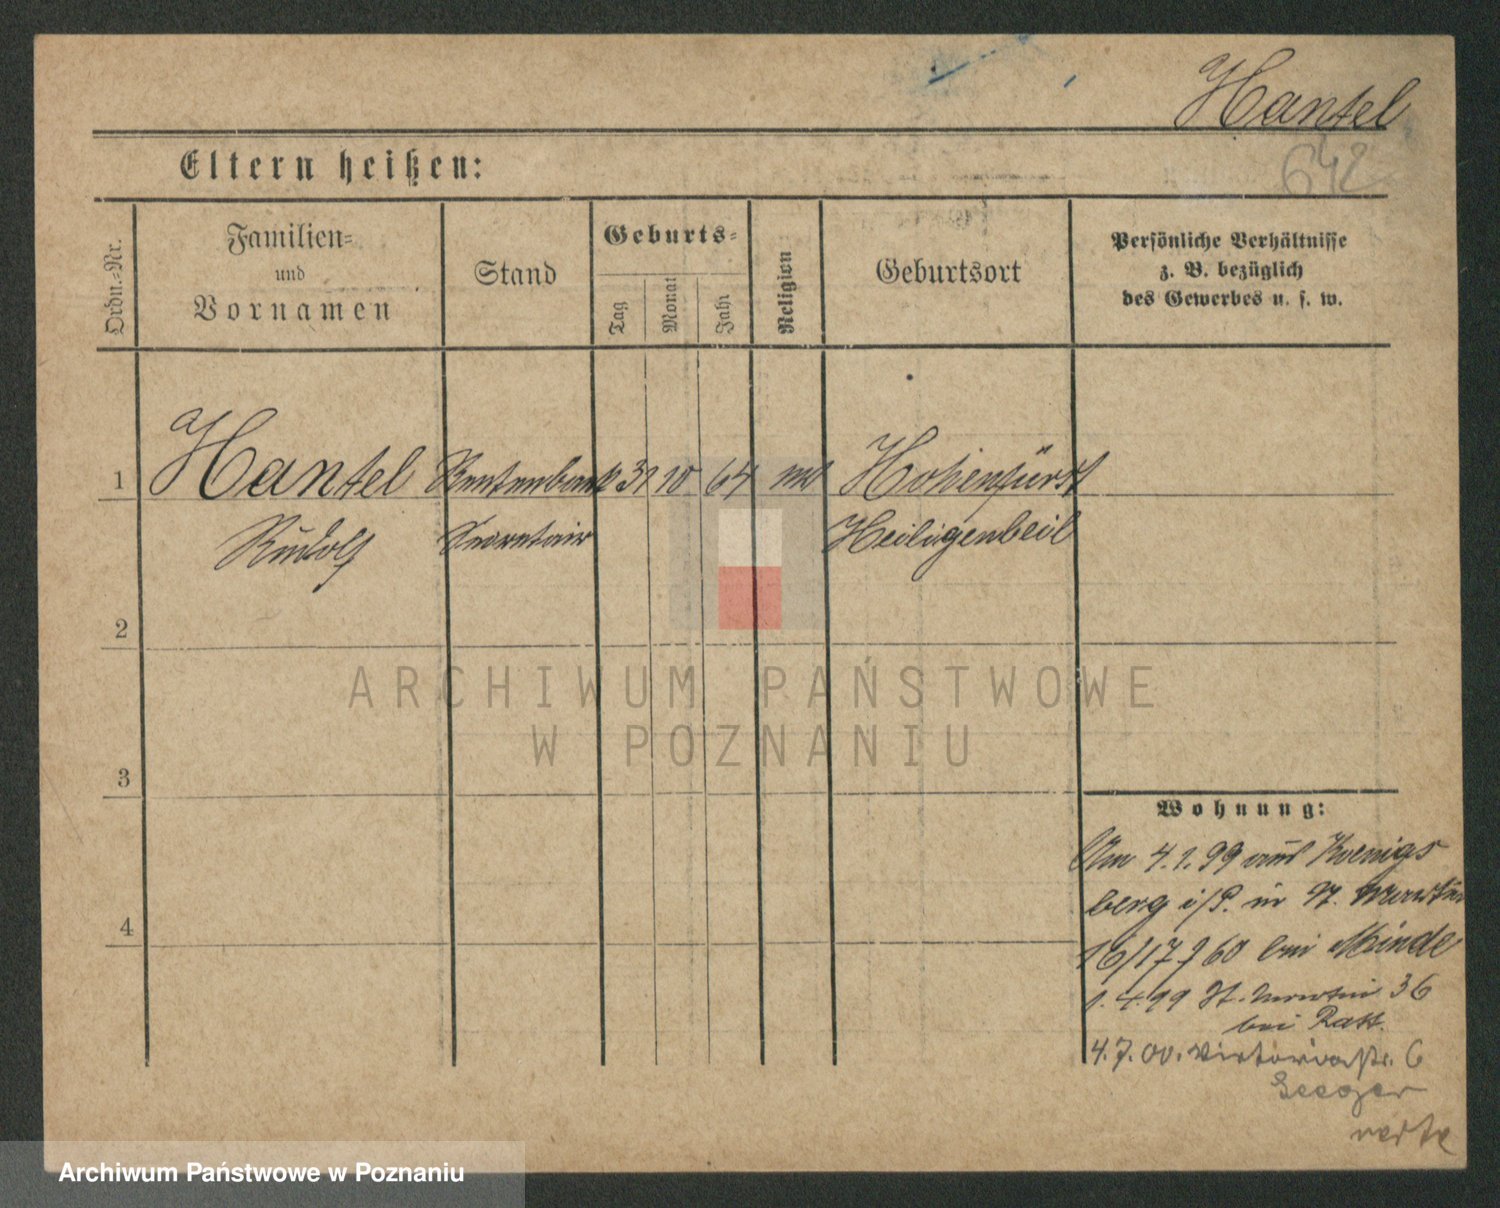 Hantel
642
Eltern heißen:
Ordn.-Nr.
Familien-
und
Vornamen
Stand
Geburts-
Tag
Monat
Jahr
Religion
Geburtsort
Persönliche Verhältnisse
z. B. bezüglich
des Gewerbes u. s. w.
1 Hantel Rentenbank 31 10 64 Hohenfürst
Rudolf Secretair Heiligenbeil
2
ARCHIWUM PAŃSTWOWE
W POZNANIU
3
Wohnung:
Am 4.1.99 aus Koenigs
berg i/P. in St. Martin
4
16/17 bei Minde
1.4.99 St. Martin 36
bei Ratt.
4.7.00. Victoriastr. 6
Seeger
verte
Archiwum Państwowe w Poznaniu